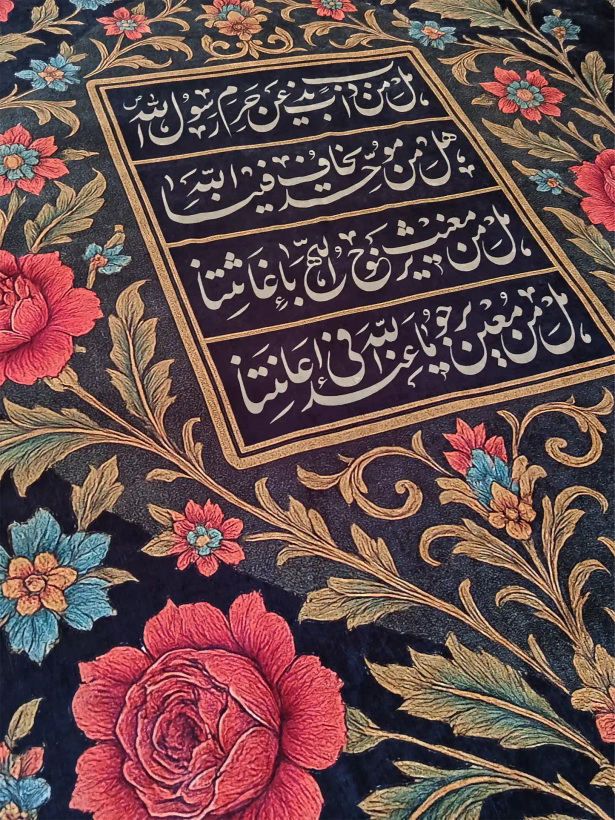 هل من ذاب يذب عن حرم رسول الله
هل من موحد يخاف الله فينا
هل من مغيث يرجو الله بإغاثتنا
هل من معين يرجو ما عند الله في إعانتنا